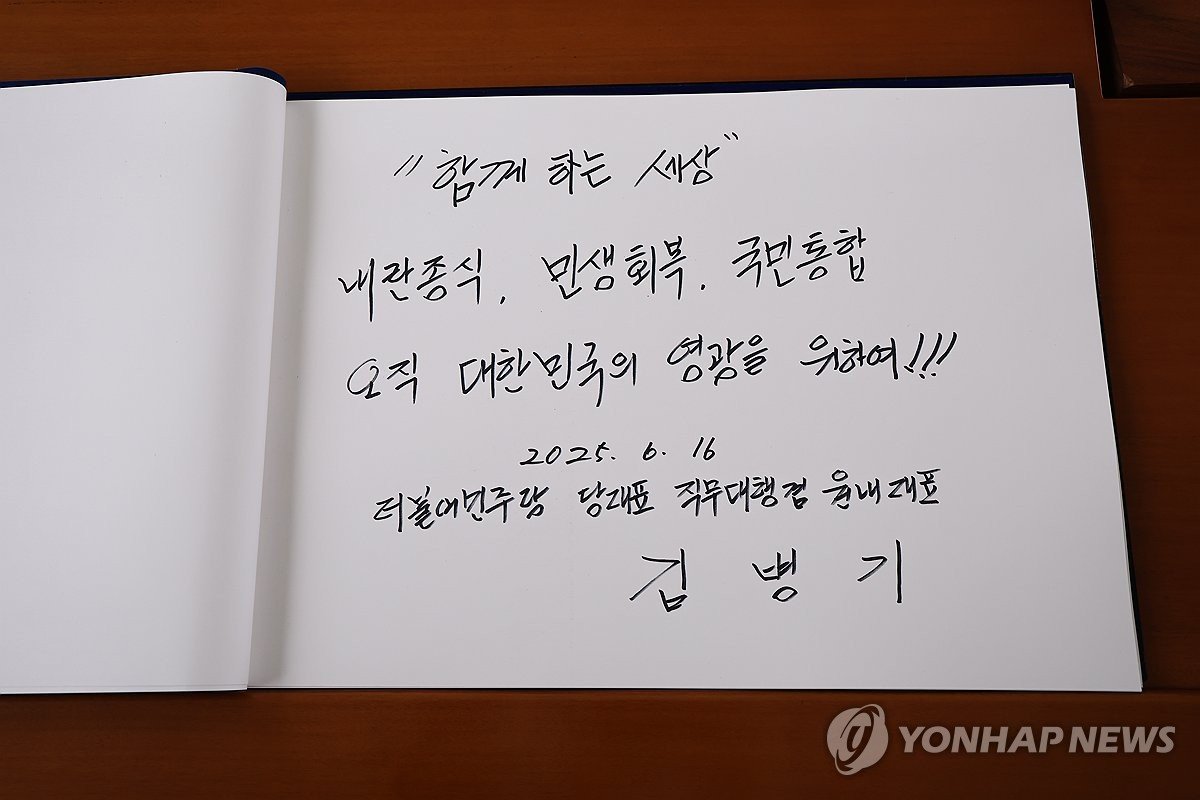 "함께 하는 세상"
내란종식, 민생회복, 국민통합
오직 대한민국의 영광을 위하여!!!
2025. 6. 16
더불어민주당 당대표 직무대행겸 원내대표
김 병 기
YONHAP NEWS